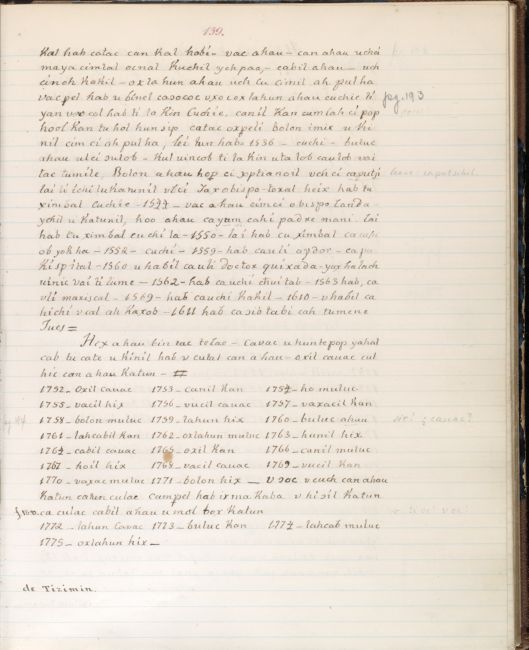 139.
Kal hab catac can Kal hobi- vac ahau - can ahau uchci
maya cimlal ocnal Kuchil ychpaa,- cabil ahau - uch
ci noh Kakil - oxlahun ahau uch cu cimil ah pul ha
vac pel hab u binel casococ uxoc oxlahun ahau cuchie ti
pag. 193
yan u xocol hab ti la Kin Cuchie, canil Kan cumlah ci pop
hool Kan tu hol hun sip catac oxpeli bolon imix u Ki
nil cim ci ah pulha, lei tun hab 1536 - cuchi - buluc
ahau ulci sulob - Kul uincob ti la Kin uta lob cautob uai
tac tumile, Bolon ahau hop ci xptianoil uchci caputzi
lai li ichi lu Katunil ulci Yax obispo toxal heix hab tu
ximbal Cuchie - 1544 - vac ahau cimci obispo landa -
ychil u Katunil, hoo ahau cayum cahi padre mani. lai
hab cu ximbal cuchi la - 1550 - lai hab cu ximbal
ob yokha - 1552 - cuchi - 1559 - hab cauli oydor - ca
Kispital - 1560 u habil cauli doctor quixada - yax halach
uinic vai ti lume - 1562 - hab cauchi chuitab - 1563 hab, ca
uli mariscal - 1569 - hab cauchi Kakil - 1610 - u habil ca
hichi u cal ah Kaxob - 1611 hab casib tabi cah tumene
Jues =
Hex ahau bin tac telae - Cavac u huntepop yahal
cab tu cate u Kinil hab u culal can ahau - oxil cauac cul
hic can ahau Katun - #
1752 - Oxil cauac 1753 - canil Kan 1754 - ho muluc
1755 - vacil hix 1756 - vucil cauac 1757 - vaxacil Kan
1758 - bolon muluc 1759 - lahun hix 1760 - buluc ahau
1761 - lahcabil Kan 1762 - oxlahun muluc 1763 - hunil hix
1764 - cabil cauac 1765 - oxil Kan 1766 - canil muluc
1767 - hoil hix 1768 - vacil cauac 1769 - vucil Kan
1770 - vaxac muluc 1771 - bolon hix - u xoc u cuch can ahau
Katun catun culac campel hab ix ma Kaba u hisil Katun
ca culac cabil ahau u mol box Katun
1772 - lahun Cavac 1773 - buluc Kan 1774 - lahcab muluc
1775 - oxlahun hix -
de Tizimin.